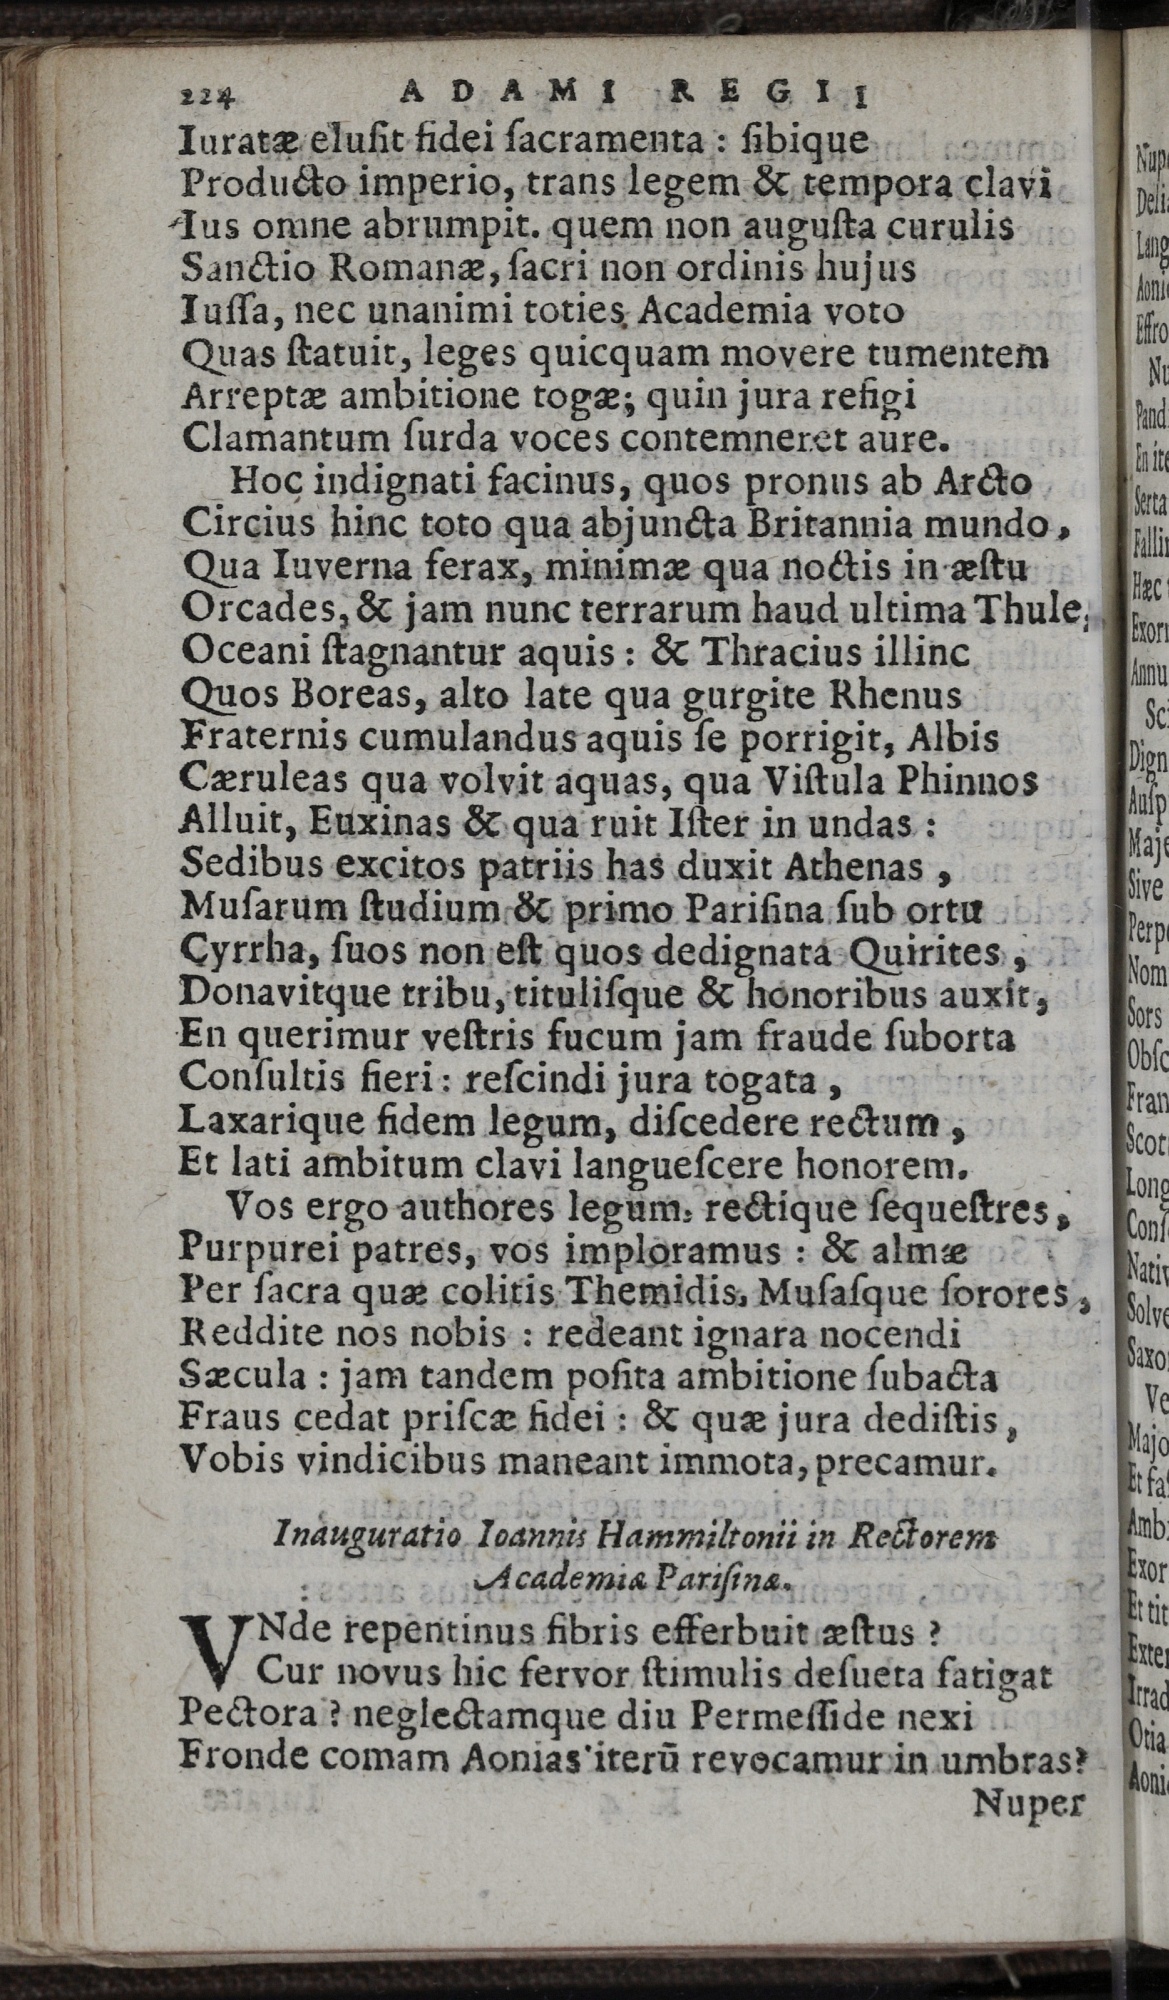 224 ADAMI REGII
Iuratæ eluſit fidei ſacramenta : ſibique
Producto imperio, trans legem & tempora clavi
Ius omne abrumpit. quem non auguſta curulis
Sanctio Romanæ, ſacri non ordinis hujus
Iuſſa, nec unanimi toties Academia voto
Quas ſtatuit, leges quicquam movere tumentem
Arreptæ ambitione togæ; quin jura refigi
Clamantum ſurda voces contemneret aure.
Hoc indignati facinus, quos pronus ab Arcto
Circius hinc toto qua abjuncta Britannia mundo,
Qua Iuverna ferax, minimæ qua noctis in æſtu
Orcades, & jam nunc terrarum haud ultima Thule,
Oceani ſtagnantur aquis : & Thracius illinc
Quos Boreas, alto late qua gurgite Rhenus
Fraternis cumulandus aquis ſe porrigit, Albis
Cæruleas qua volvit aquas, qua Viſtula Phinnos
Alluit, Euxinas & qua ruit Iſter in undas :
Sedibus excitos patriis has duxit Athenas,
Muſarum ſtudium & primo Pariſina ſub ortu
Cyrrha, ſuos non eſt quos dedignata Quirites,
Donavitque tribu, tituliſque & honoribus auxit,
En querimur veſtris fucum jam fraude ſuborta
Conſultis fieri : reſcindi jura togata,
Laxarique fidem legum, diſcedere rectum,
Et lati ambitum clavi langueſcere honorem.
Vos ergo authores legum, rectique ſequeſtres,
Purpurei patres, vos imploramus : & almæ
Per ſacra quæ colitis Themidis, Muſaſque ſorores,
Reddite nos nobis : redeant ignara nocendi
Sæcula : jam tandem poſita ambitione ſubacta
Fraus cedat priſcæ fidei : & quæ jura dediſtis,
Vobis vindicibus maneant immota, precamur.
Inauguratio Ioannis Hammiltonii in Rectorem
Academiæ Pariſinæ.
VNde repentinus fibris efferbuit æſtus ?
Cur novus hic fervor ſtimulis deſueta fatigat
Pectora ? neglectamque diu Permeſſide nexi
Fronde comam Aonias iterū revocamur in umbras?
Nuper